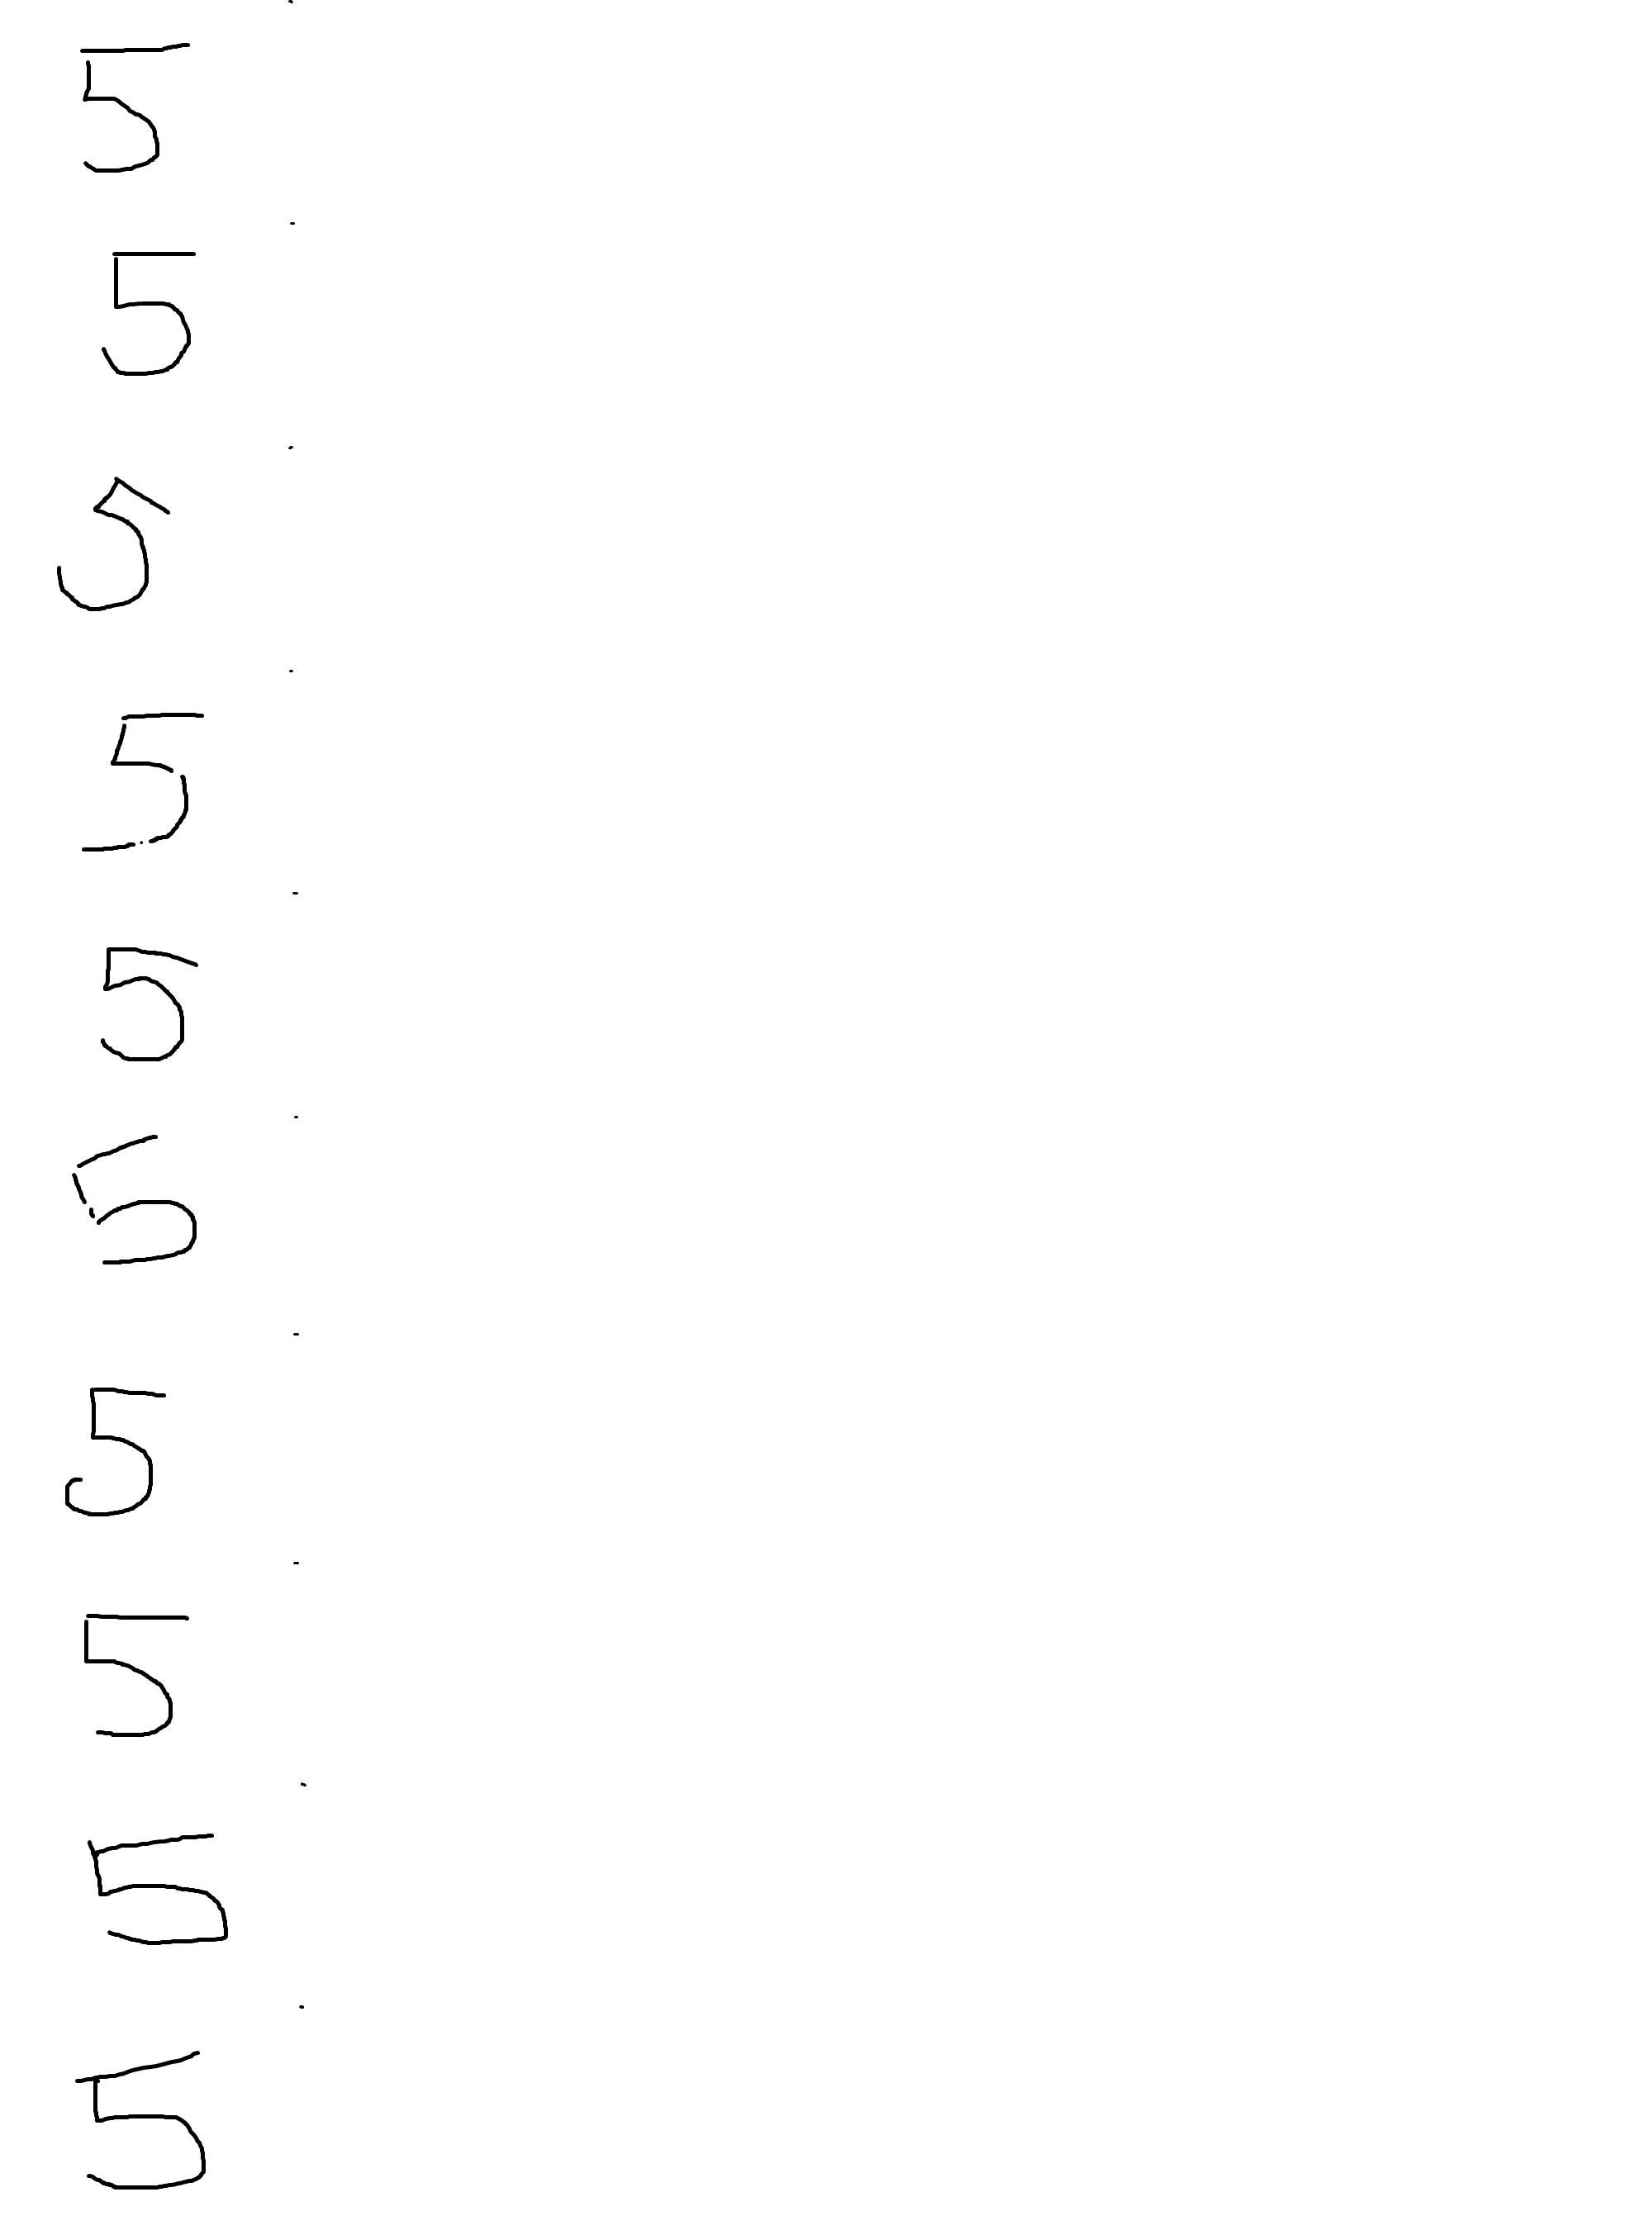 5
5
5
5
5
5
5
5
5
5